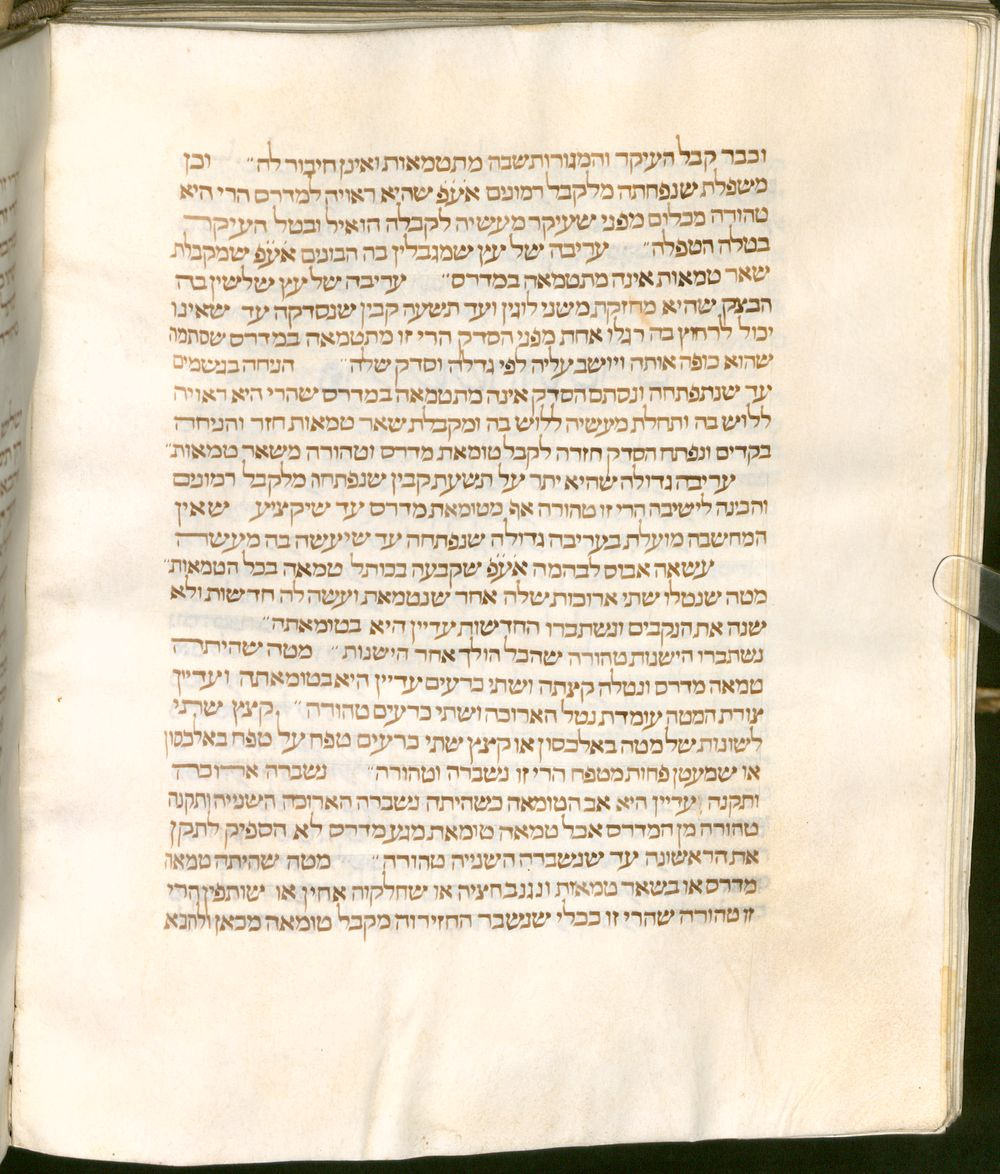 וכבר קבל העיקר והמגורות שבה מתטמאות ואינן חיבור לה״ וכן
משפלת שנפחתה מלקבל רמונים אע״פ שהיא ראויה למדרס הרי היא
טהורה מכלום מפני שעיקר מעשיה לקבלה הואיל ובטל העיקר
בטלה הטפלה״ עריבה של עץ שמגבלין בה הבונים אע״פ שמקבלת
שאר טמאות אינה מתטמאה במדרס״ עריבה של עץ שלשין בה
הבצק שהיא מחזקת משני לוגין ועד תשעה קבין שנסדקה עד שאינו
יכול לרחוץ בה רגלו אחת מפני הסדק הרי זו מתטמאה במדרס שסתמה
שהוא כופה אותה ויושב עליה לפי גדלה וסדק שלה״ הניחה בגשמים
עד שנתפתחה ונסתם הסדק אינה מתטמאה במדרס שהרי היא ראויה
ללוש בה ותחלת מעשיה ללוש בה ומקבלת שאר טמאות חזר והניחה
בקדים ונפתח הסדק חזרה לקבל טומאת מדרס וטהורה משאר טמאות״
עריבה גדולה שהיא יתר על תשעת קבין שנפחתה מלקבל רמונים
והכינה לישיבה הרי זו טהורה אף מטומאת מדרס עד שיקציע שאין
המחשבה מועלת בעריבה גדולה שנפתחה עד שיעשה בה מעשה
עשאה אבוס לבהמה אע״פ שקבעה בכותל טמאה בכל הטמאות״
מטה שנטלו שתי ארוכות שלה אחר שנטמאת ועשה לה חדשות ולא
שנה את הנקבים ונשתברו החדשות עדיין היא בטומאתה״
נשתברו הישנות טהורה שהכל הולך אחר הישנות״ מטה שהיתה
טמאה מדרס ונטלה קצתה ושתי כרעים עדיין היא בטומאתה ועדיין
צורת המטה עומדת נטל הארוכה ושתי כרעים טהורה״ קצץ שתי
לשונות של מטה באלכסון או קצץ שתי כרעים טפח על טפח באלכסון
או שמעטן פחות מטפח הרי זו נשברה וטהורה״ נשברה ארוכה
ותקנה עדיין היא אב הטומאה כשהיתה נשברה הארוכה השנייה ותקנה
טהורה מן המדרס אבל טמאה טומאת מגע מדרס לא הספיק לתקן
את הראשונה עד שנשברה השנייה טהורה״ מטה שהיתה טמאה
מדרס או בשאר טמאות ונגנב חציה או שחלקוה אחין או שותפין הרי
זו טהורה שהרי זו ככלי שנשבר החזירוה מקבל טומאה מכאן ולהבא